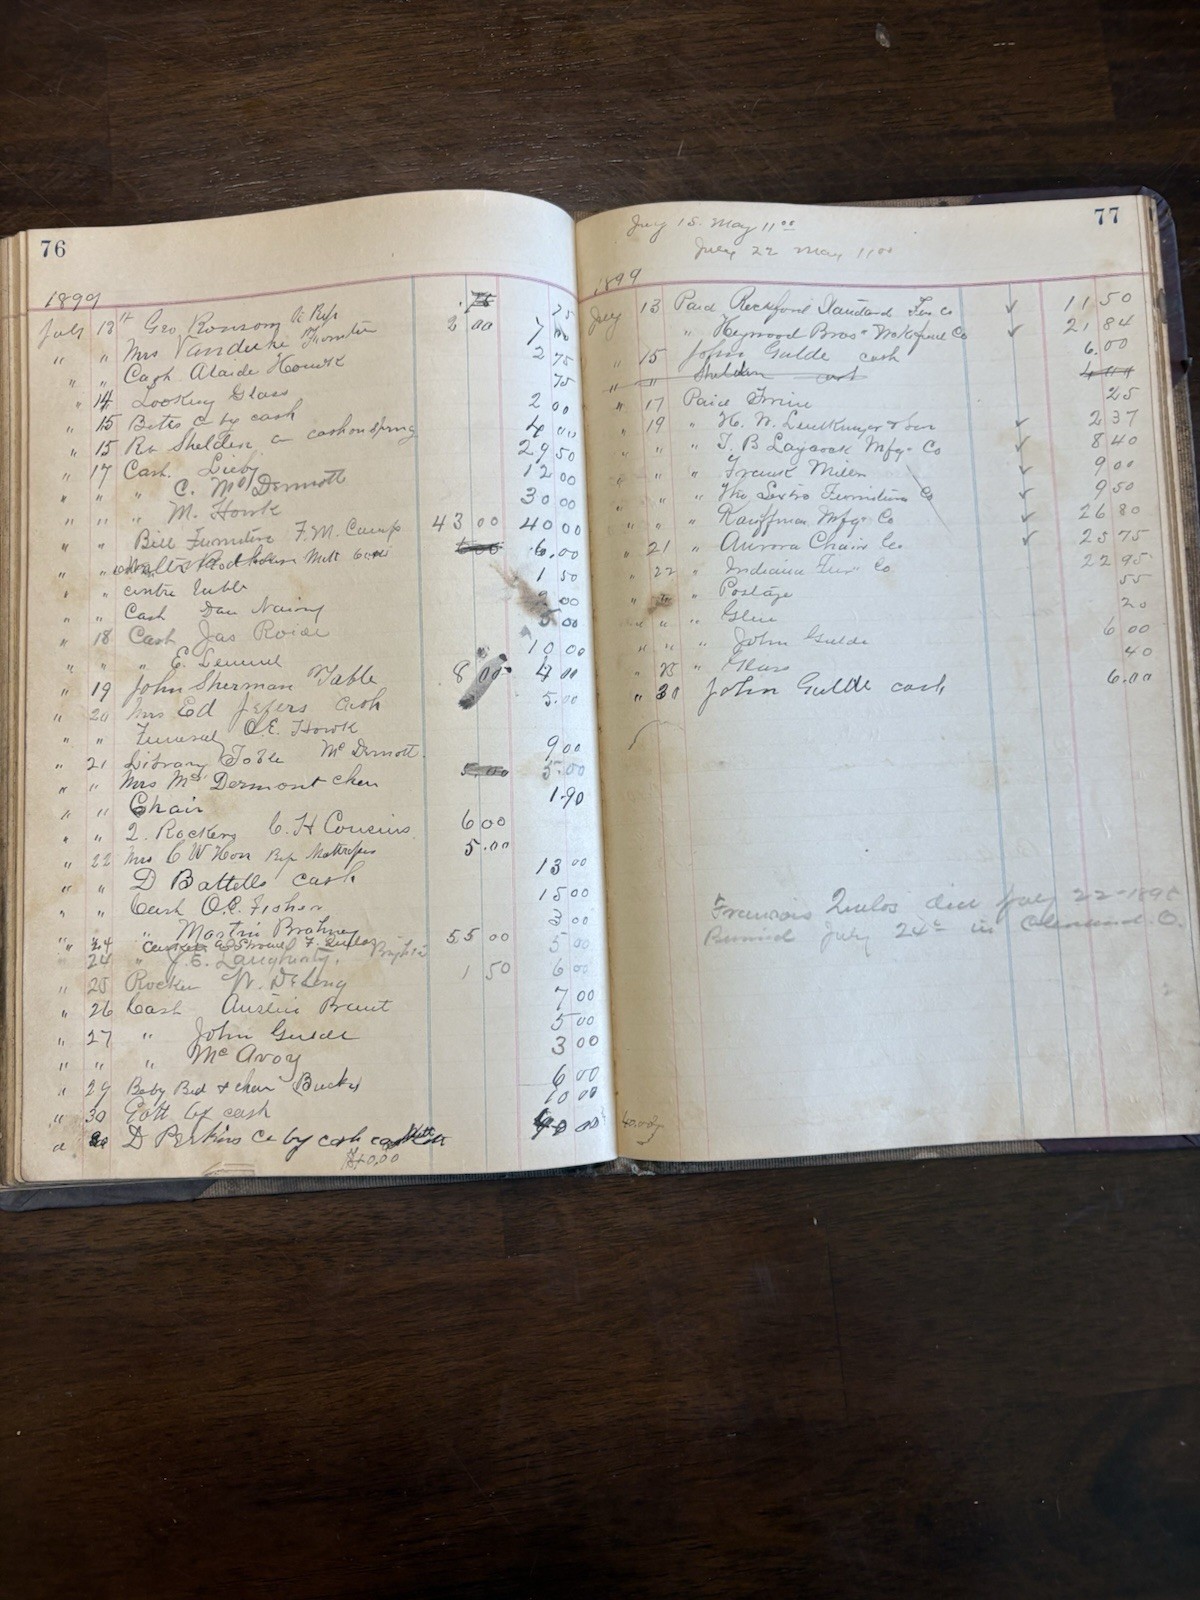 76
1899
July 12th Geo Ronsom a Rep .75 75
" " Mrs Vanduke Furniture 2 00 7 00
" " Cash Alaide Houck 2 75
" 14 Looking Glass 75
" 15 Betts a by cash 2 00
" 15 Ra Shelden a cash on spring 4 00
" 17 Cash. Lieby 29 50
" " " C. McDermott 12 00
" " " M. Houk 30 00
" " Bill Furniture F.M. Camp 43 00 40 00
" " 6.00
" " centre table 1 50
" " Cash Dan Nairy 00
" 18 Cash Jas Roide 5 00
" " " E. Lemmel 10 00
" 19 John Sherman Table 8 00 4 00
" 20 Mrs Ed Jefers Cash 5.00
" " Funeral O.E. Houk
" 21 Library Table McDermott 9 00
" " Mrs McDermont chair 5.00 5.00
" " Chair 1.90
" " 2. Rockers C. H Cousins 6 00
" 22 Mrs C W Horr Rep Mattress 5.00
" " D Battells cash 13 00
" " Cash O.C. Fisher 15 00
" Martin Brahney 3 00
" 24 F. 55 00 5 00
24 " J. E. Laughnaty. 6 00
" 25 Rocker W. DeLong 1 50
" 26 Cash Austin Brant 7 00
" 27 " John Gulde 5 00
" " " McAvoy 3 00
" 29 Baby Bed & chair 6 00
" 30 Gott by cash 10 00
" 30 D Perkins Ca by cash 40 00
$40.00
77
July 15. May 11 00
July 22 May 11 00
1899
July 13 Paid Rockford Standard Fur Co ✓ 11 50
" Heywood Bros & Wakefield Co ✓ 21 84
" 15 John Gulde cash 6.00
" " Shelden cash
" 17 Paid 25
" 19 " H. N. & Son ✓ 2 37
" " " T. B Laycock Mfg. Co ✓ 8 40
" " " Frank Miller ✓ 9 00
" " " The Furniture Co ✓ 9 50
" " " Kauffman Mfg. Co ✓ 26 80
" 21 " Aurora Chair Co ✓ 25 75
" 22 " Indiana Fur. Co 22 95
" " " Postage 55
" " " Glue 20
" " " John Gulde 6 00
" 25 " Glass 40
" 30 John Gulde cash 6.00
Francois died July 22-189
Buried July 24th in Cleveland O.
40.00